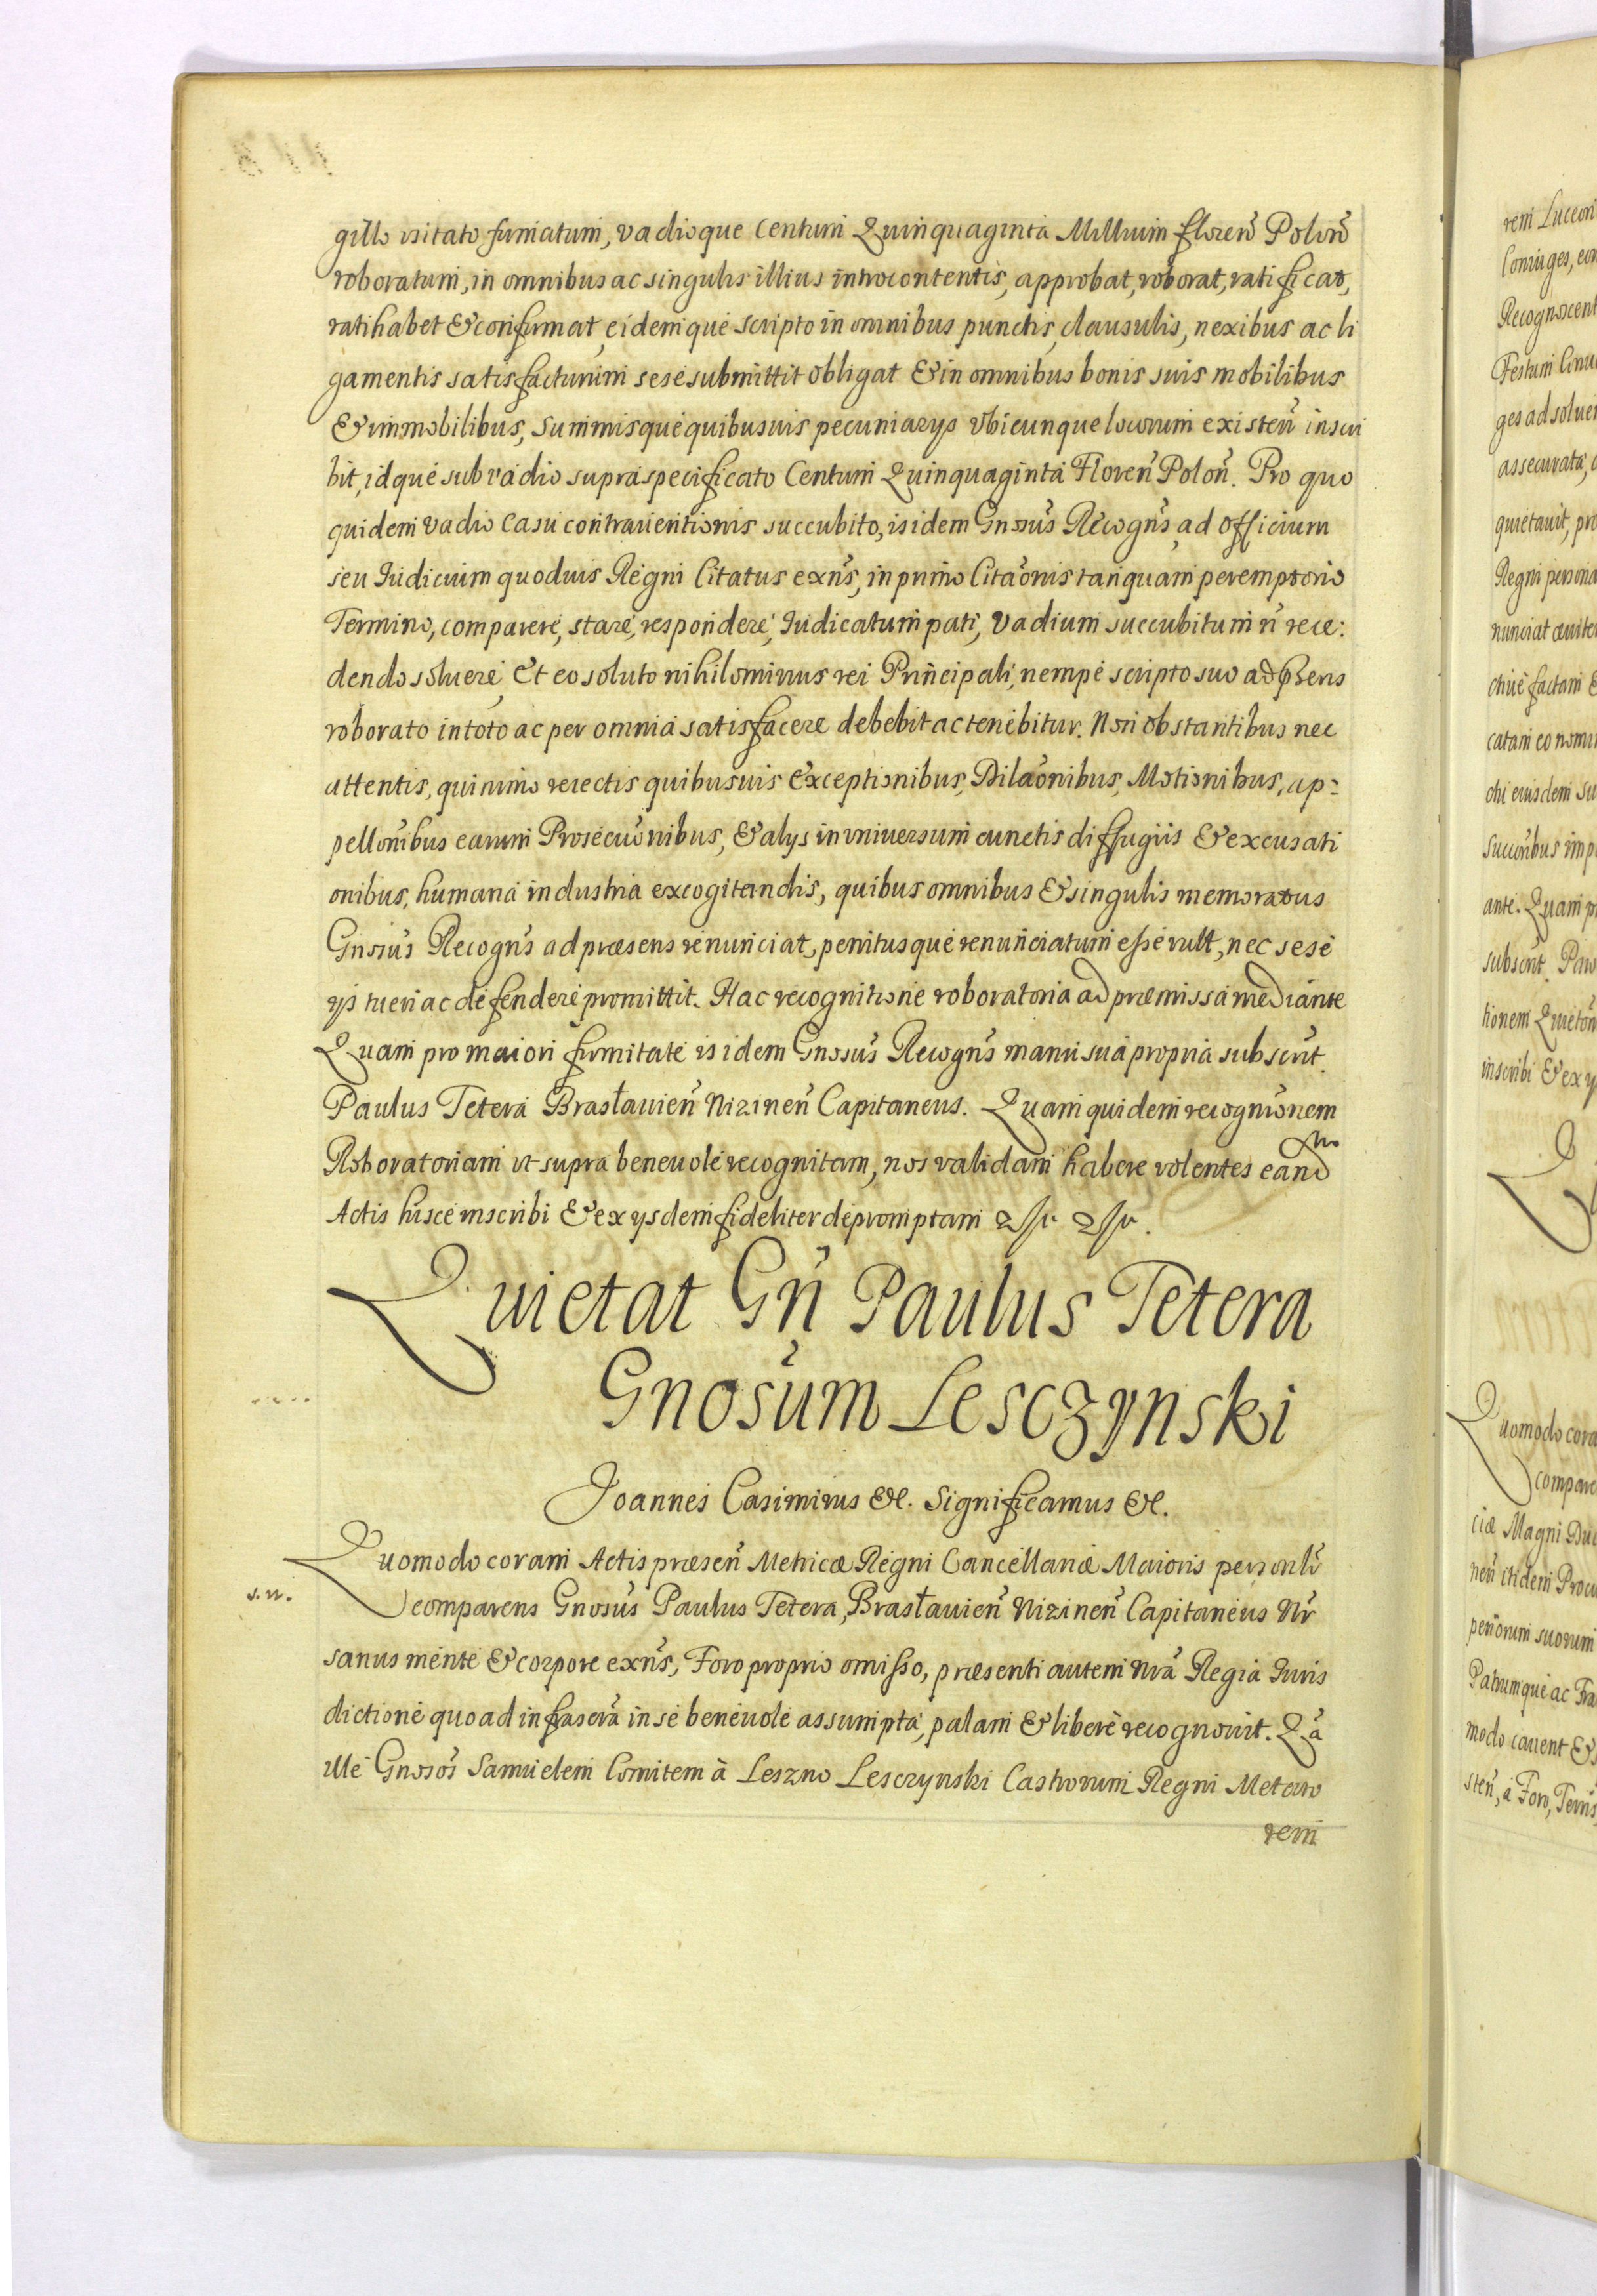 gillo usitato firmatum, vadioque Centum Quinquaginta Millium floreñ Poloñ
roboratum, in omnibus ac singulis illius introcontentis, approbat, roborat, ratificat,
ratihabet & confirmat, eidemque scripto in omnibus punctis, clausulis, nexibus ac li
gamentis satisfacturum sese submittit obligat & in omnibus bonis suis mobilibus
& immobilibus, Summisque quibusuis pecuniarys Vbicunque locorum existeñ inscri
bit, idque sub vadio supraspecificato Centum Quinquaginta Floreñ Poloñ. Pro quo
quidem vadio Casu contrauentionis succubito, is idem Gnosus Recogñs ad Officium
seu Iudicium quoduis Regni Citatus exñs, in primo Citãonis tanquam peremptorio
Termino, comparere, stare, respondere, Iudicatum pati, Vadium succubitum ñ rece:
dendo soluere, Et eo soluto nihilominus rei Principali, nempe scripto suo ad phens
roborato in toto ac per omnia satisfacere debebit ac tenebitur. Non obstantibus nec
attentis, quinimo reiectis quibusuis Exceptionibus, Dilãonibus, Motionibus, ap:
pellõnibus earum Prosecuõnibus, & alys in vniuersum cunctis diffugiis & excusati
onibus, humana industria excogitandis, quibus omnibus & singulis memoratus
Gnosus Recogñs ad præsens renunciat, penitusque renunciatum esse vult, nec sese
ys tueri ac defendere promittit. Hac recognitione roboratoria ad præmissa mediante
Quam pro maiori firmitate is idem Gnosus Recogñs manu sua propria subscrit.
Paulus Tetera Brasłauieñ Nizineñ Capitaneus. Quam quidem recogniõnem
Roboratoriam ut supra beneuole recognitam, nos validam habere volentes eand
Actis hisce inscribi & ex ysdem fideliter depromptam
Quietat Gñ Paulus Tetera
Gnosum Lesczynski
Joannes Casimirus &c. Significamus &c.
Quomodo coram Actis præseñ Metricæ Regni Cancellariæ Maioris personlr
s. n.
comparens Gnosus Paulus Tetera, Brasłauieñ Nizineñ Capitaneus Nr
sanus mente & corpore exñs, Foro proprio omisso, præsenti autem Nrã Regia Iuris
dictione quoad infrascrã in se beneuole assumpta, palam & libere recognouit. Qã
ille Gnosos Samuelem Comitem à Leszno Lesczynski Castrorum Regni Metato
rem
rem Luceori
Coniuges, eor
Recognoscent
Festum
ges ad soluen
assecurata,
quietauit, pro
Regni persona
nunciat
ctiue factam &
catam eo nomi
chi eiusdem su
succõribus imp
ante. Quam pr
subscrit. Paw
tionem Quietõn
inscribi & ex y
Quomodo cora
compare
ciæ Magni Duc
neñ itidem Procu
penorum suorum
Patrumque ac Fra
modo cauent &
steñ, a Foro,